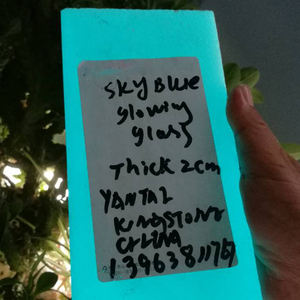 Sky Blue
glowing
glass
Thick 2cm
YANTAI
KINGSTONE
CHINA
13963811767